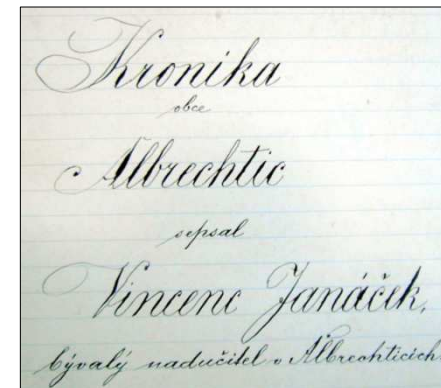 Kronika
obce
Albrechtic
sepsal
Vincenc Janáček,
bývalý nadučitel v Albrechticích